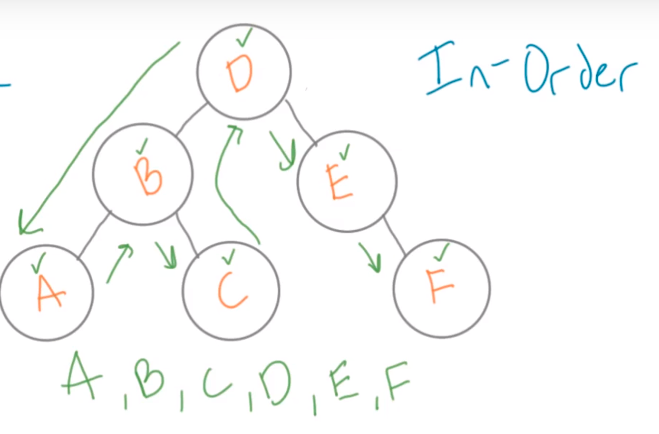 In-Order
D
B
E
A
C
F
A, B, C, D, E, F